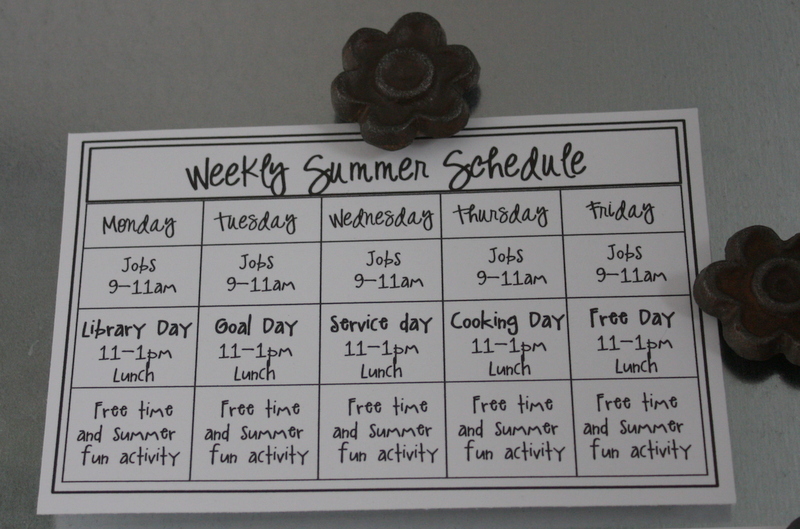 Weekly Summer Schedule
Monday Tuesday Wednesday Thursday Friday
Jobs Jobs Jobs Jobs Jobs
9-11am 9-11am 9-11am 9-11am 9-11am
Library Day Goal Day Service day Cooking Day Free Day
11-1pm 11-1pm 11-1pm 11-1pm 11-1pm
Lunch Lunch Lunch Lunch Lunch
Free time Free time Free time Free time Free time
and Summer and Summer and Summer and Summer and Summer
fun activity fun activity fun activity fun activity fun activity